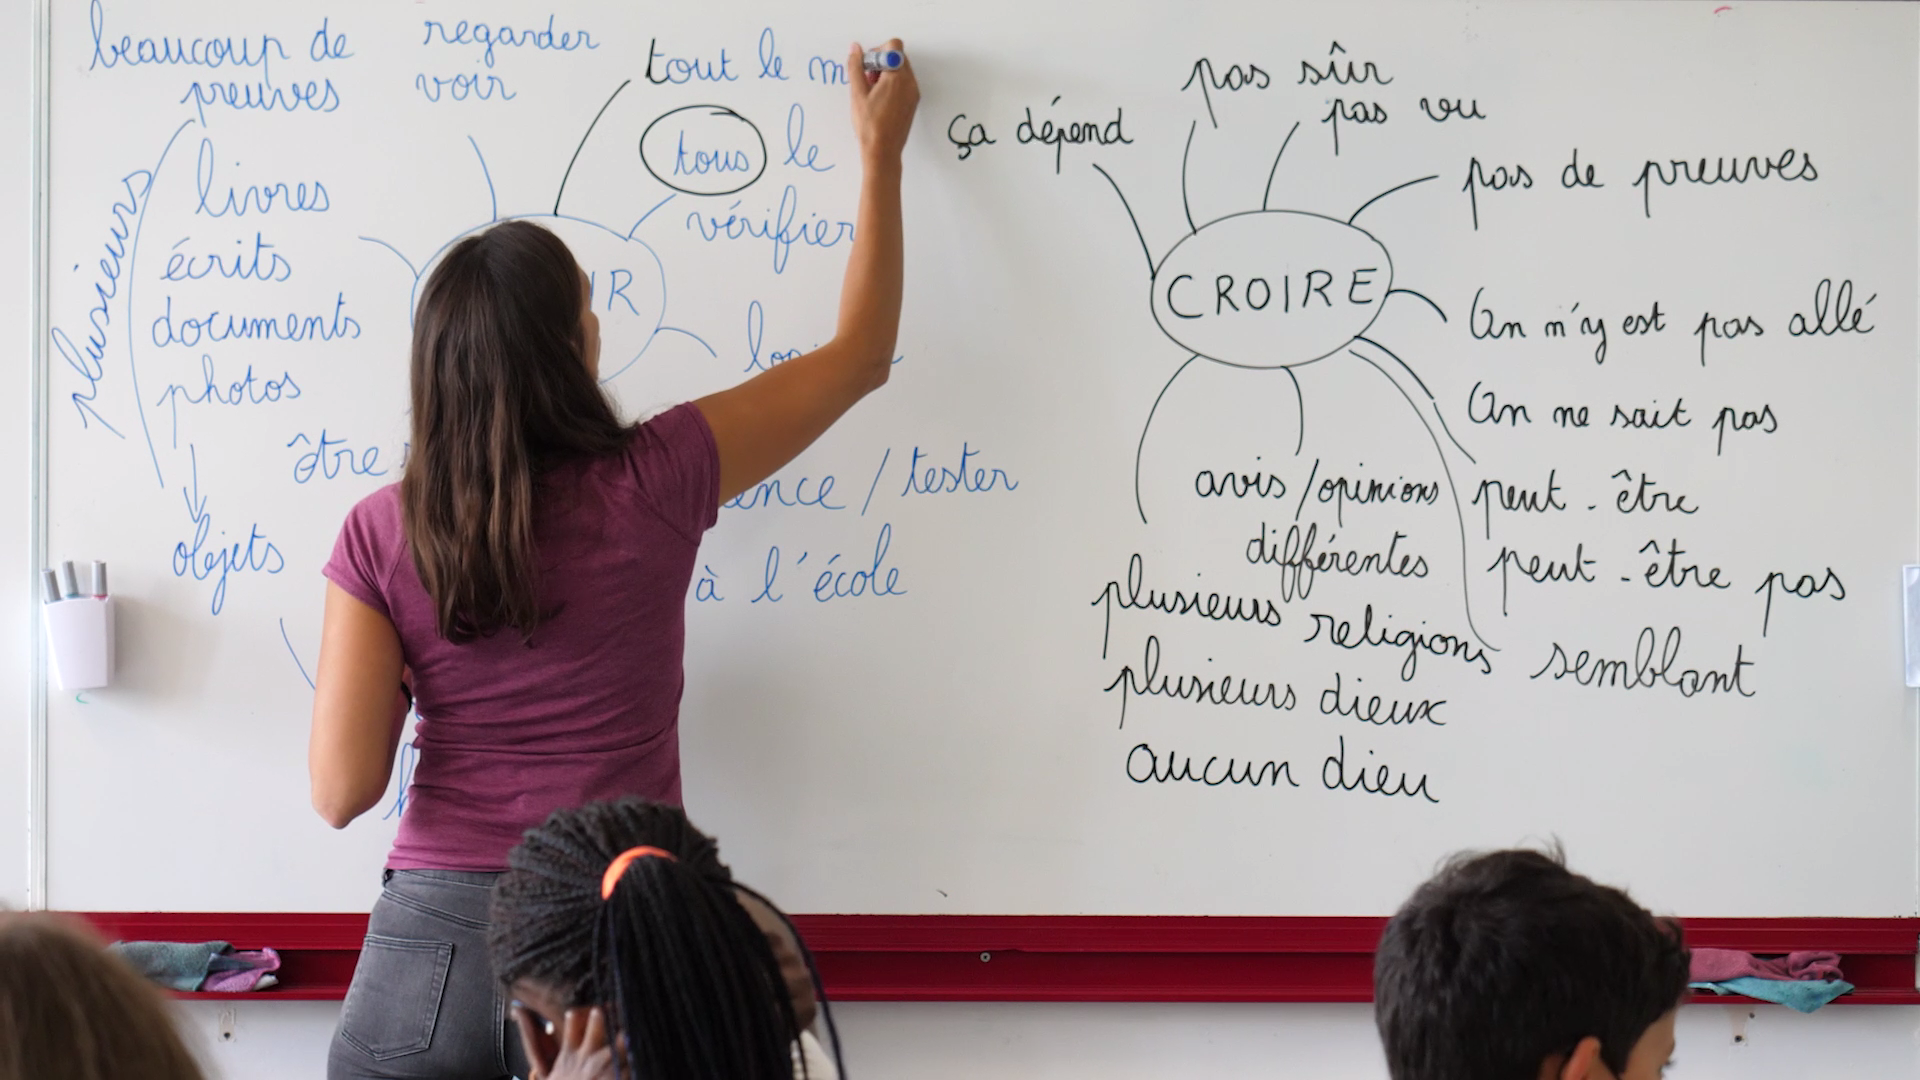 beaucoup de
preuves
regarder
voir
tout le m
tous le
vérifier
plusieurs
livres
écrits
documents
photos
objets
être
IR
ence / tester
à l'école
ça dépend
pas sûr
pas vu
pas de preuves
CROIRE
On n'y est pas allé
On ne sait pas
peut-être
peut-être pas
semblant
avis/opinions
différentes
plusieurs religions
plusieurs dieux
aucun dieu